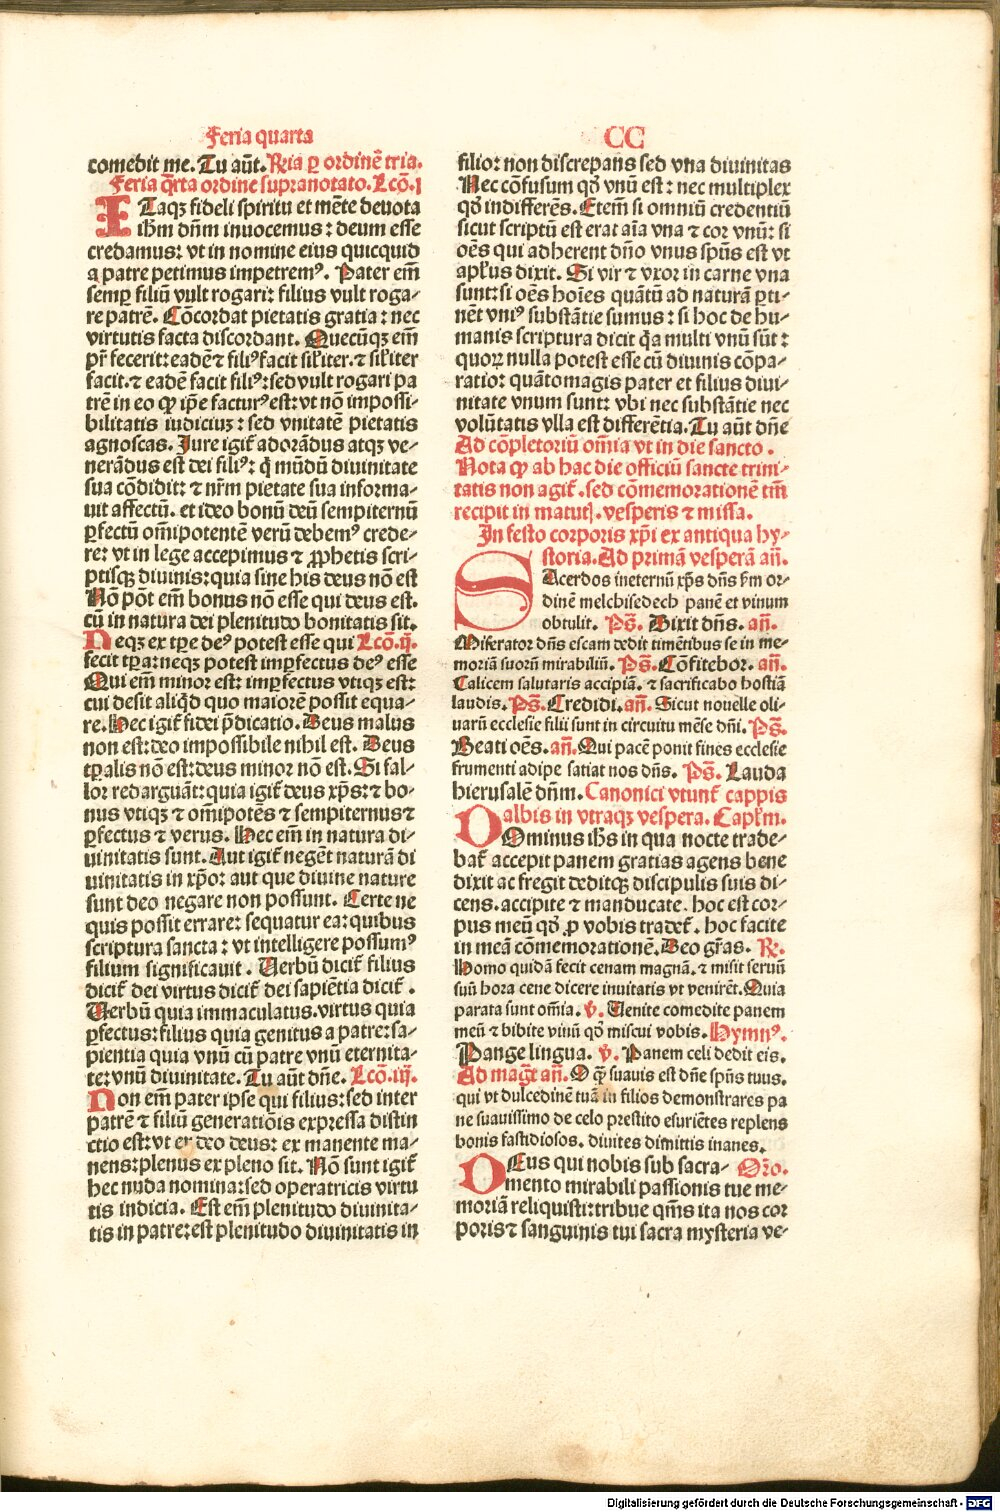 Feria quarta
CC
comedit me. Tu aūt. R̄ria ꝑ ordinē tria.
Feria q̄rta ordine supranotato. Lcō. i
ITaqꝫ fideli spiritu et mēte deuota
ihm̄ dn̄m inuocemus: deum esse
credamus: vt in nomine eius quicquid
a patre petimus impetremꝰ. Pater em̄
semꝑ filiū vult rogari: filius vult roga-
re patrē. Cōcordat pietatis gratia: nec
virtutis facta discordant. Quecūqꝫ em̄
pr̄ fecerit: eadē ⁊ filiꝰ facit sil'iter. ⁊ sil'iter
facit. ⁊ eadē facit filiꝰ: sed vult rogari pa
trē in eo ꝙ ip̄e facturꝰ est: vt nō impossi-
bilitatis iudiciuꝫ: sed vnitatē pietatis
agnoscas. Jure igit̄ adorādus atqꝫ ve-
nerādus est dei filiꝰ: q̇ mūdū diuinitate
sua cōdidit: ⁊ nr̄m pietate sua informa-
uit affectū. et ideo bonū deū sempiternū
ꝑfectū om̄ipotentē verū debemꝰ crede-
re: vt in lege accepimus ⁊ ꝓphetis scri-
ptisqꝫ diuinis: quia sine his deus nō est
Nō pōt em̄ bonus nō esse qui deus est.
cū in natura dei plenitudo bonitatis sit.
Neqꝫ ex tꝑe deꝰ potest esse qui Lcō. ij.
fecit tꝑa: neqꝫ potest imꝑfectus deꝰ esse
Qui em̄ minor est: imꝑfectus vtiqꝫ est:
cui desit aliq̇d quo maiorē possit equa-
re. Hec igit̄ fidei p̄dicatio. Deus malus
non est: deo impossibile nihil est. Deus
tꝑalis nō est: deus minor nō est. Si fal-
lor redarguāt: quia igit̄ deus xp̄s: ⁊ bo-
nus vtiqꝫ ⁊ om̄ipotēs ⁊ sempiternus ⁊
ꝑfectus ⁊ verus. Hec em̄ in natura di-
uinitatis sunt. Aut igit̄ negēt naturā di
uinitatis in xp̄o: aut que diuine nature
sunt deo negare non possunt. Certe ne
quis possit errare: sequatur ea: quibus
scriptura sancta: vt intelligere possumꝰ
filium significauit. Uerbū dicit̄ filius
dicit̄ dei virtus dicit̄ dei sapiētia dicit̄.
Uerbū quia immaculatus. virtus quia
ꝑfectus: filius quia genitus a patre: sa-
pientia quia vnū cū patre vnū eternita-
te: vnū diuinitate. Tu aūt dn̄e. Lcō. iij.
Non em̄ pater ipse qui filius: sed inter
patrē ⁊ filiū generatiōis expressa distin
ctio est: vt ex deo deus: ex manente ma-
nens: plenus ex pleno sit. Nō sunt igit̄
hec nuda nomina: sed operatricis virtu
tis indicia. Est em̄ plenitudo diuinita-
tis in patre: est plenitudo diuinitatis in
filio: non discrepans sed vna diuinitas
Nec cōfusum qd̄ vnū est: nec multiplex
qd̄ indifferēs. Etem̄ si omniū credentiū
sicut scriptū est erat aīa vna ⁊ cor vnū: si
oēs qui adherent dn̄o vnus sp̄us est vt
apl'us dixit. Si vir ⁊ vxor in carne vna
sunt: si oēs hoīes quātū ad naturā ꝑti-
nēt vniꝰ substātie sumus: si hoc de hu-
manis scriptura dicit q̇a multi vnū sūt:
quoꝝ nulla potest esse cū diuinis cōpa-
ratio: quāto magis pater et filius diui-
nitate vnum sunt: vbi nec substātie nec
volūtatis vlla est differētia. Tu aūt dn̄e
Ad cōpletoriū om̄ia vt in die sancto.
Nota ꝙ ab hac die officiū sancte trini-
tatis non agit̄. sed cōmemorationē tm̄
recipit in matuṫ. vesperis ⁊ missa.
In festo corporis xp̄i ex antiqua hy-
storia. Ad primā vesperā an̄.
SAcerdos ineternū xp̄s dn̄s ẜm or-
dinē melchisedech panē et vinum
obtulit. Ps̄. Dixit dn̄s. an̄.
Miserator dn̄s escam dedit timētibus se in me-
moriā suorū mirabiliū. Ps̄. Cōfitebor. an̄.
Calicem salutaris accipiā. ⁊ sacrificabo hostiā
laudis. Ps̄. Credidi. an̄. Sicut nouelle oli-
uarū ecclesie filii sunt in circuitu mēse dn̄i. Ps̄.
Beati oēs. an̄. Qui pacē ponit fines ecclesie
frumenti adipe satiat nos dn̄s. Ps̄. Lauda
hierusalē dn̄m. Canonici vtunt̄ cappis
albis in vtraqꝫ vespera. Capl'm.
DOminus ih̄s in qua nocte trade-
bat̄ accepit panem gratias agens bene
dixit ac fregit deditqꝫ discipulis suis di-
cens. accipite ⁊ manducate. hoc est cor-
pus meū qd̄ ꝓ vobis tradet̄. hoc facite
in meā cōmemorationē. Deo gr̄as. R̄.
Homo quidā fecit cenam magnā. ⁊ misit seruū
suū hora cene dicere inuitatis vt venirēt. Quia
parata sunt om̄ia. v̄. Uenite comedite panem
meū ⁊ bibite vinū qd̄ miscui vobis. Hymnꝰ.
Pange lingua. v̄. Panem celi dedit eis.
Ad maḡt an̄. O q̄ suauis est dn̄e sp̄us tuus.
qui vt dulcedinē tuā in filios demonstrares pa
ne suauissimo de celo prestito esuriētes replens
bonis fastidiosos. diuites dimittis inanes.
DEus qui nobis sub sacra- Or̄o.
mento mirabili passionis tue me-
moriā reliquisti: tribue qm̄s ita nos cor
poris ⁊ sanguinis tui sacra mysteria ve-
Digitalisierung gefördert durch die Deutsche Forschungsgemeinschaft - DFG